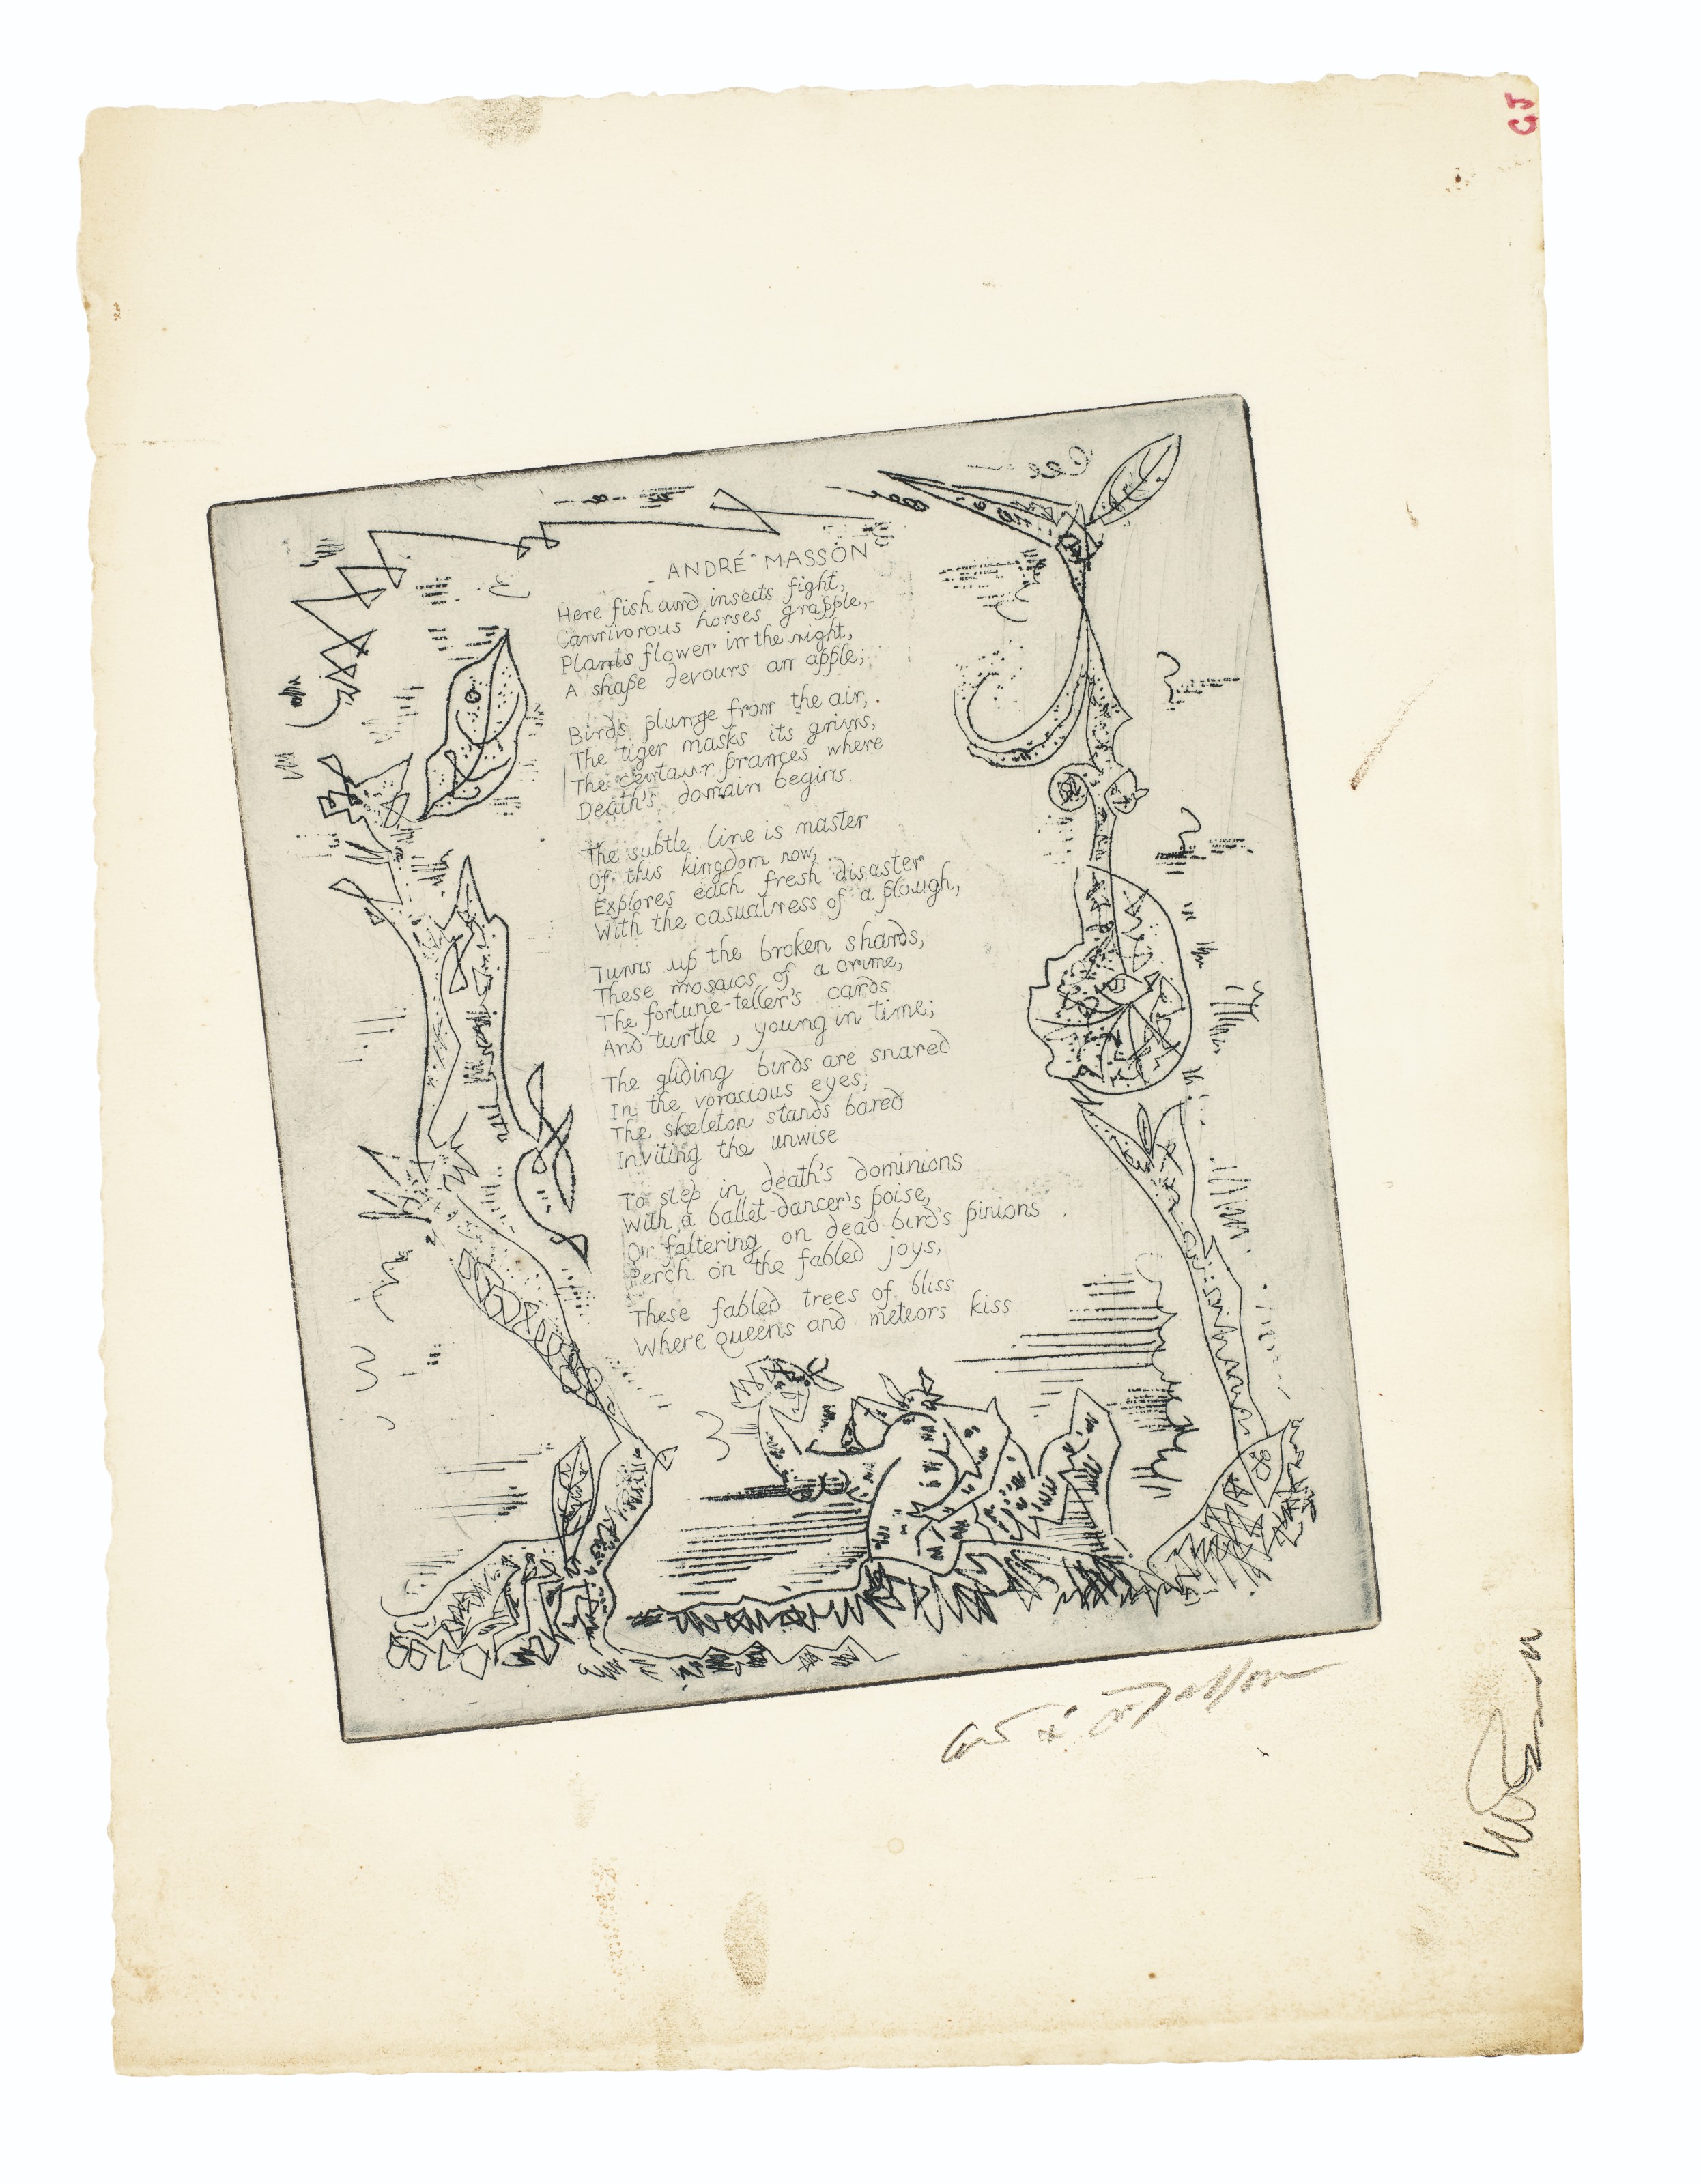 ANDRÉ MASSON
Here fish and insects fight,
Carnivorous horses grapple,
Plants flower in the night,
A shape devours an apple;
Birds plunge from the air,
The tiger masks its grins,
The centaur prances where
Death's domain begins.
The subtle line is master
Of this kingdom now,
Explores each fresh disaster
With the casualness of a plough,
Turns up the broken shards,
These mosaics of a crime,
The fortune-teller's cards
And turtle, young in time;
The gliding birds are snared
In the voracious eyes;
The skeleton stands bared
Inviting the unwise
To step in death's dominions
With a ballet-dancer's poise,
Or faltering on dead bird's pinions
Perch on the fabled joys,
These fabled trees of bliss
Where queens and meteors kiss
André Masson
GJ